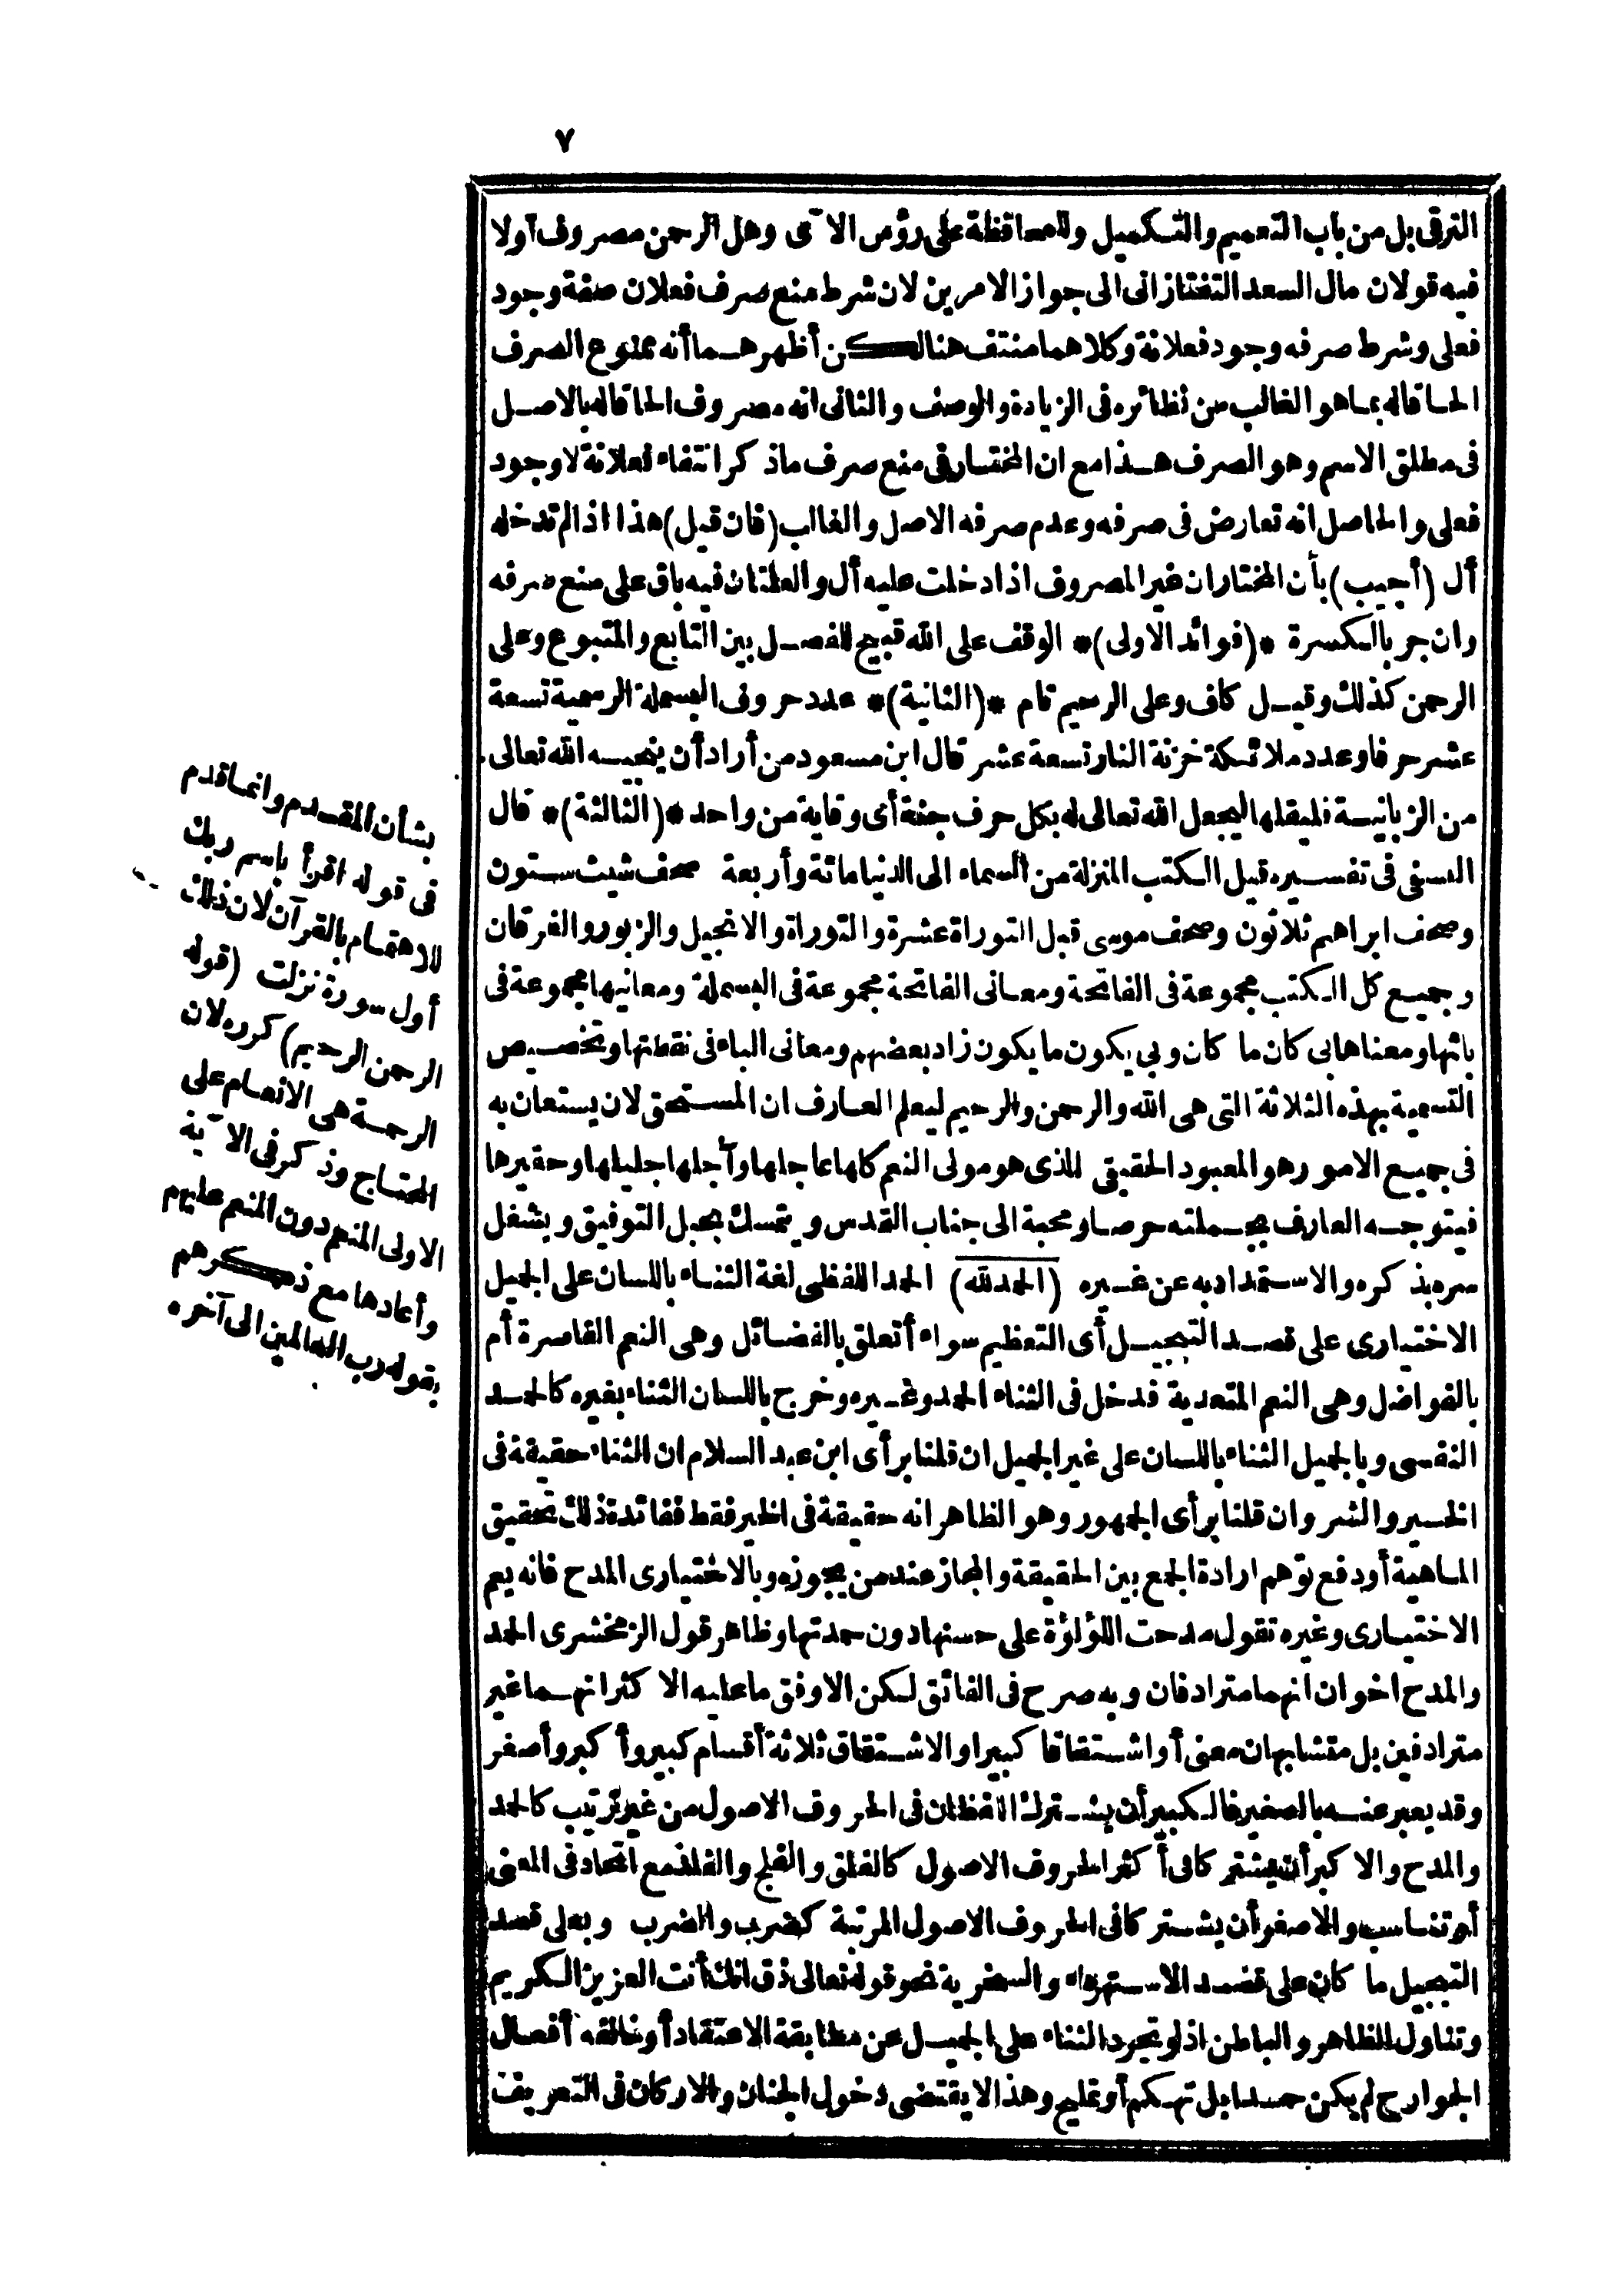 ٧
الترقى بل من باب التعميم والتكميل وللمحافظة على رؤس الآى وهل الرحمن مصروف أولا
فيه قولان مال السعد التفتازانى الى جواز الامرين لان شرط منع صرف فعلان صفة وجود
فعلى وشرط صرفه وجود فعلانة وكلاهما منتف هنا لكن أظهرهما أنه ممنوع الصرف
الحاقاله بما هو الغالب من نظائره فى الزيادة والوصف والثانى انه مصروف الحاقاله بالاصل
فى مطلق الاسم وهو الصرف هذا مع ان المختار فى منع صرف ماذكر انتفاء فعلانة لا وجود
فعلى والحاصل انه تعارض فى صرفه وعدم صرفه الاصل والغالب (فان قيل) هذا اذا لم تدخله
أل (أجيب) بأن المختار ان غير المصروف اذا دخلت عليه أل والعلتان فيه باق على منع صرفه
وان جر بالكسرة *(فوائد الاولى)* الوقف على الله قبيح للفصل بين التابع والمتبوع وعلى
الرحمن كذلك وقيل كاف وعلى الرحيم تام *(الثانية)* عدد حروف البسملة الرسمية تسعة
عشر حرفا وعدد ملائكة خزنة النار تسعة عشر قال ابن مسعود من أراد أن ينجيه الله تعالى
من الزبانية فليقلها ليجعل الله تعالى له بكل حرف جنة أى وقاية من واحد *(الثالثة)* قال
النسفى فى تفسيره قيل الكتب المنزلة من السماء الى الدنيا مائة وأربعة صحف شيث ستون
وصحف ابراهيم ثلاثون وصحف موسى قبل التوراة عشرة والتوراة والانجيل والزبور والفرقان
وجميع كل الكتب مجموعة فى الفاتحة ومعانى الفاتحة مجموعة فى البسملة ومعانيها مجموعة فى
بائها ومعناها بى كان ما كان وبى يكون ما يكون زاد بعضهم ومعانى الباء فى نقطتها وتخصيص
التسمية بهذه الثلاثة التى هى الله والرحمن والرحيم ليعلم العارف ان المستحق لان يستعان به
فى جميع الامور هو المعبود الحقيقى الذى هو مولى النعم كلها عاجلها وآجلها جليلها وحقيرها
فيتوجه العارف بجملته حرصا ومحبة الى جناب القدس ويتمسك بحبل التوفيق ويشغل
سره بذكره والاستمداد به عن غيره (الحمد لله) الحمد اللفظى لغة الثناء باللسان على الجميل
الاختيارى على قصد التبجيل أى التعظيم سواء أتعلق بالفضائل وهى النعم القاصرة أم
بالفواضل وهى النعم المتعدية فدخل فى الثناء الحمد وغيره وخرج باللسان الثناء بغيره كالحمد
النفسى وبالجميل الثناء باللسان على غير الجميل ان قلنا برأى ابن عبد السلام ان الثناء حقيقة فى
الخير والشر وان قلنا برأى الجمهور وهو الظاهر انه حقيقة فى الخير فقط ففائدة ذلك تحقيق
الماهية أو دفع توهم ارادة الجمع بين الحقيقة والمجاز عند من يجوزه وبالاختيارى المدح فانه يعم
الاختيارى وغيره تقول مدحت اللؤلؤة على حسنها دون حمدتها وظاهر قول الزمخشرى الحمد
والمدح اخوان انهما مترادفان وبه صرح فى الفائق لكن الاوفق ما عليه الاكثر انهما غير
مترادفين بل متشابهان معنى أو اشتقاقا كبيرا والاشتقاق ثلاثة أقسام كبير وأكبر وأصغر
وقد يعبر عنه بالصغير فالكبير أن يشترك اللفظان فى الحروف الاصول من غير ترتيب كالحمد
والمدح والاكبر أن يشتركا فى أكثر الحروف الاصول كالفلق والفلج والفلذ مع اتحاد فى المعنى
أو تناسب والاصغر أن يشتركا فى الحروف الاصول المرتبة كضرب والضرب وبعلى قصد
التبجيل ما كان على قصد الاستهزاء والسخرية نحو قوله تعالى ذق انك أنت العزيز الكريم
وتناول الظاهر والباطن اذ لو تجرد الثناء على الجميل عن مطابقة الاعتقاد أو خالفه أفعال
الجوارح لم يكن حمدا بل تهكم أو تمليح وهذا لا يقتضى دخول الجنان والاركان فى التعريف
بشأن المقدم وانما قدم
فى قوله اقرأ باسم ربك
للاهتمام بالقرآن لان ذلك
أول سورة نزلت (قوله
الرحمن الرحيم) كرره لان
الرحمة هى الانعام على
المحتاج وذكر فى الآية
الاولى المنعم دون المنعم عليهم
وأعادها مع ذكرهم
بقوله رب العالمين الى آخره